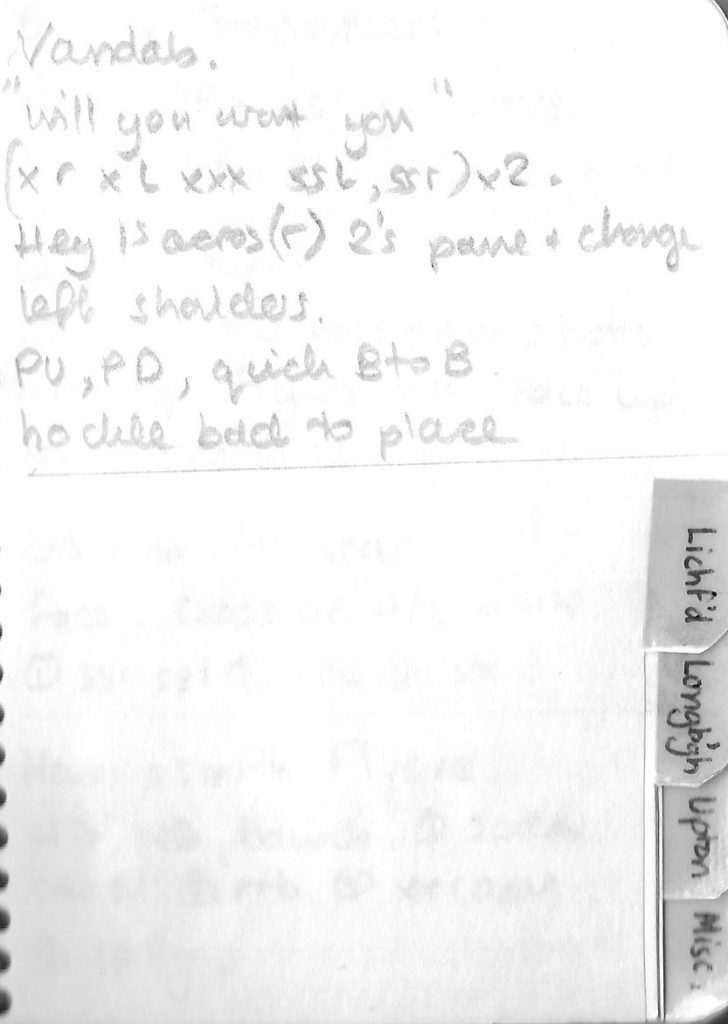 Vandals.
"will you want you"
(x r x L xxx ssL, ssr) x2.
Hey 1s acros(r) 2's pame + change
left shoulders.
PU, PD, quick B to B
hockle back to place
Lichf'd
Longb'gh
Upton
Misc.